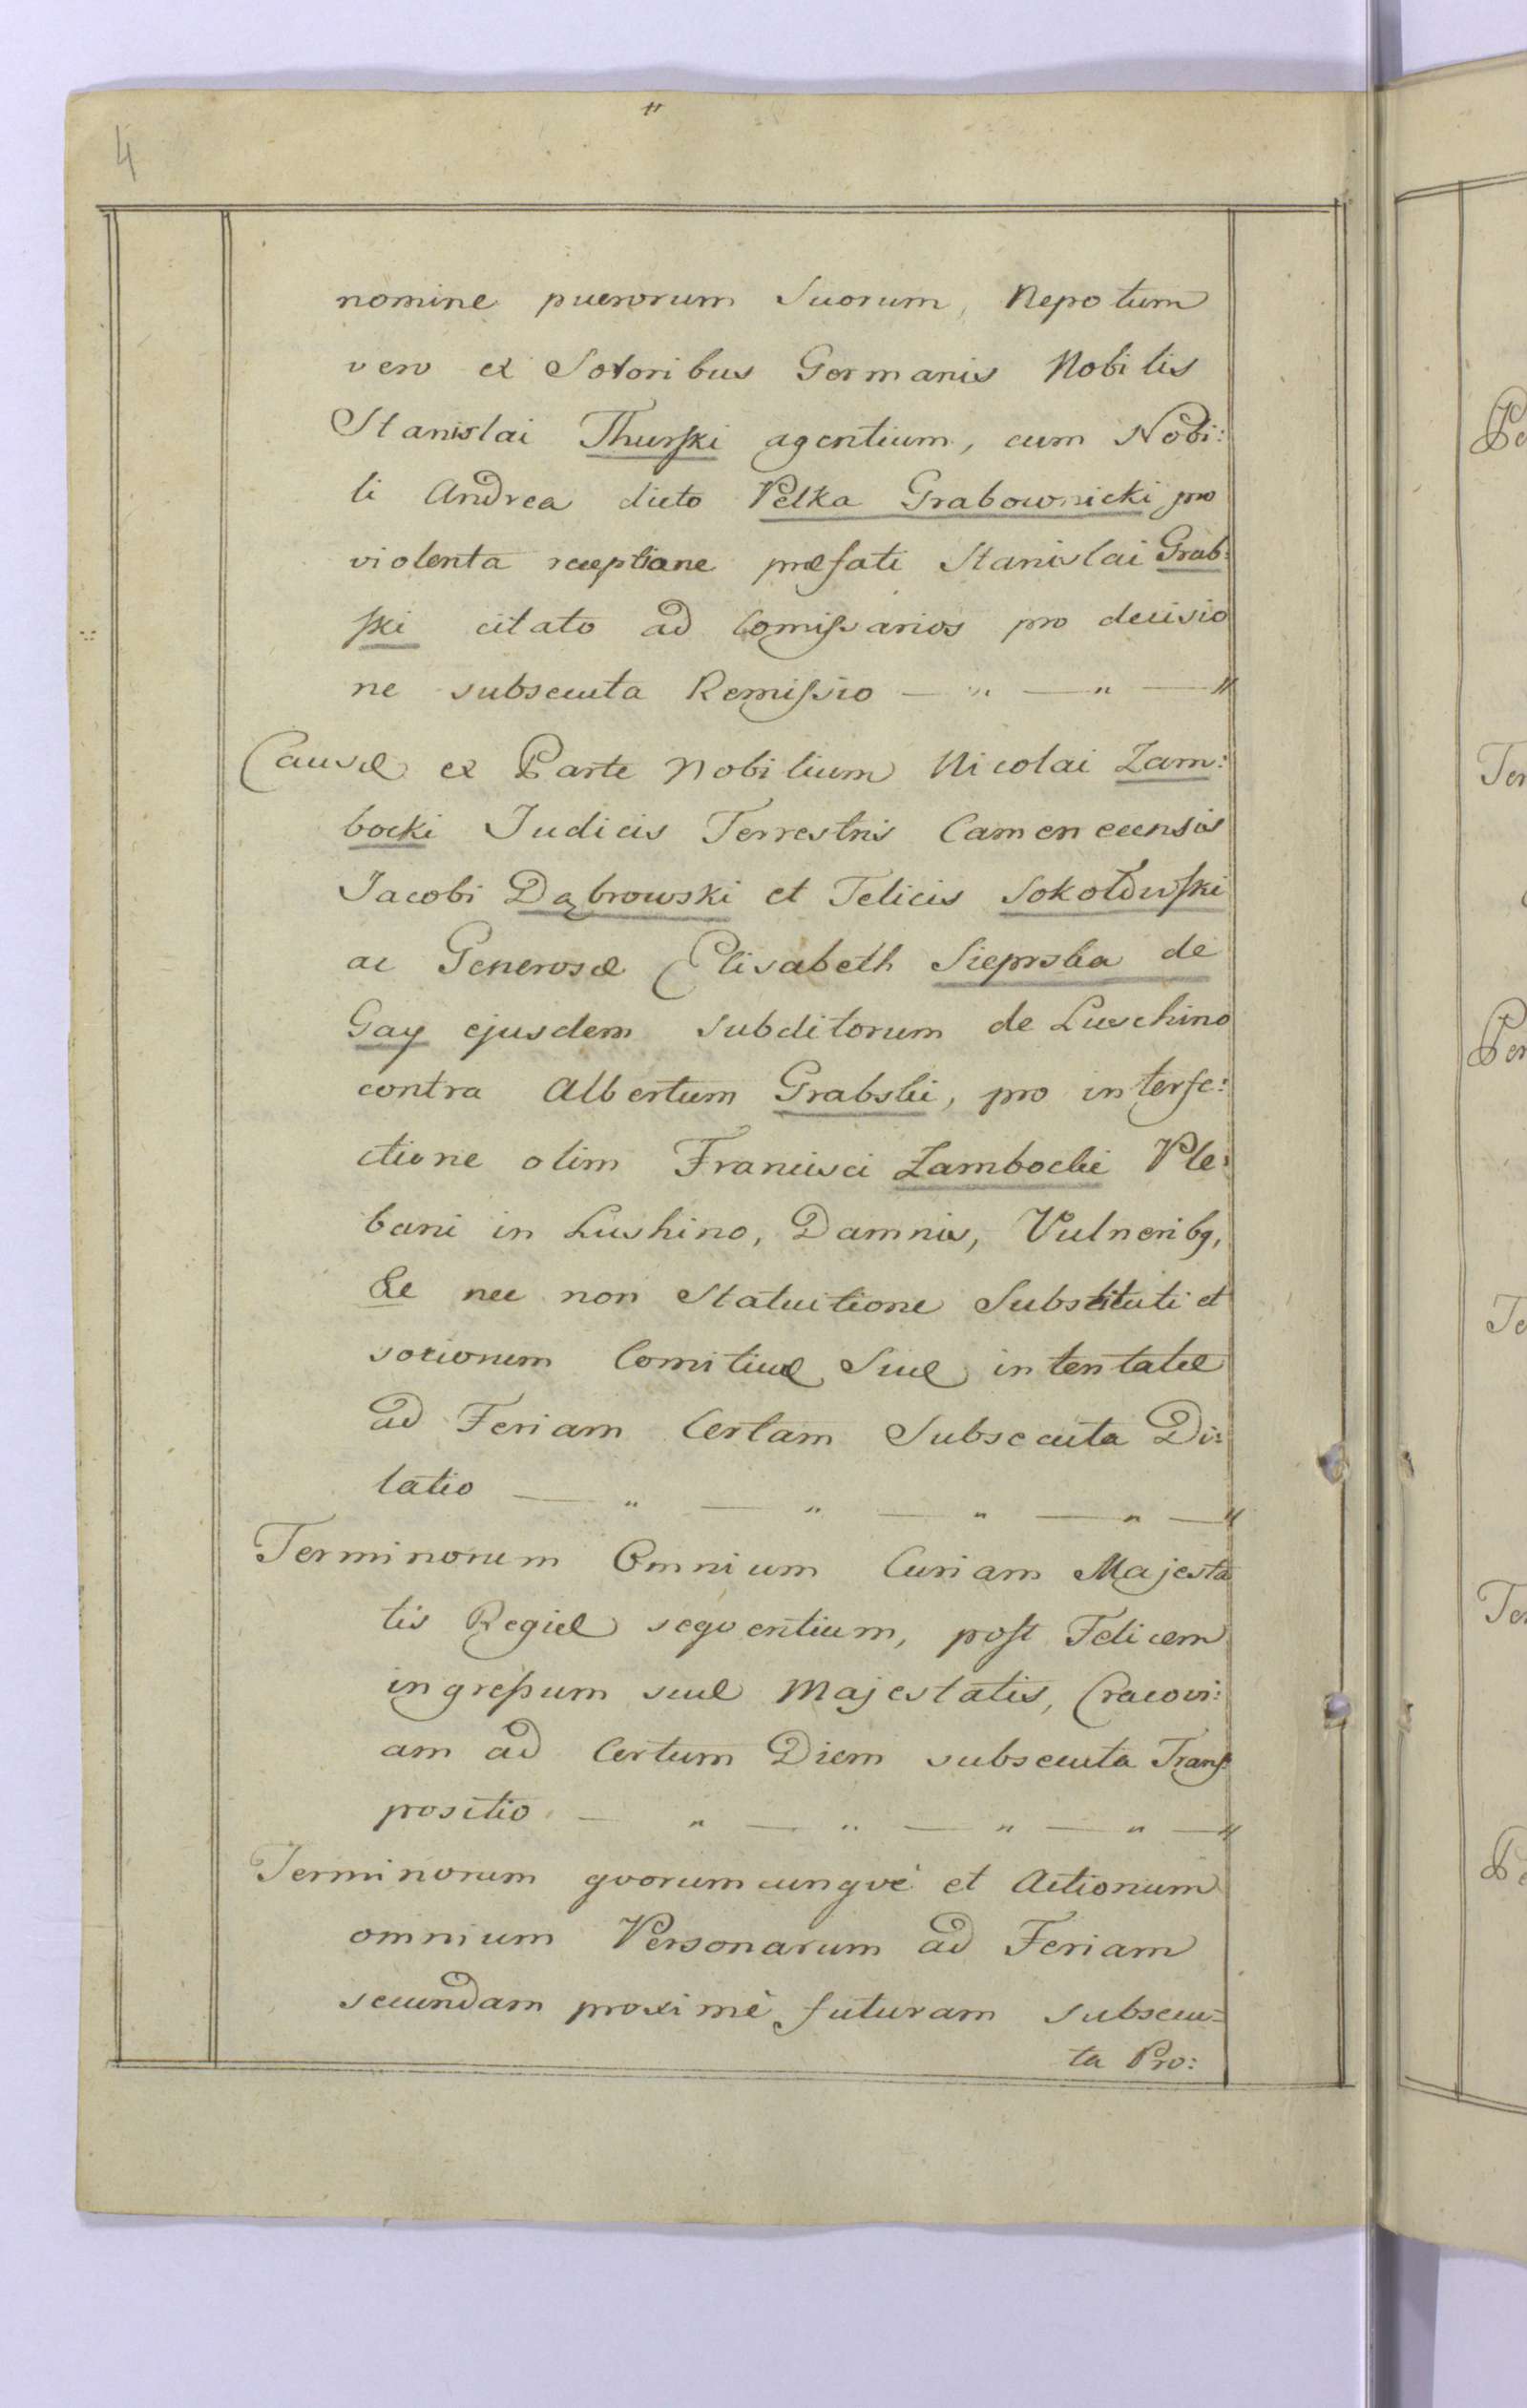 4
nomine puerorum Suorum, Nepotum
vero ex Sororibus Germanis Nobilis
Stanislai Thurski agentium, cum Nobi:
li Andrea dicto Pełka Grabownicki pro
violenta receptione præfati Stanislai Grab:
ski citato ad Comissarios pro decisio
ne subsecuta Remissio — " — " — "
Causæ ex Parte Nobilium Nicolai Zam:
bocki Judicis Terrestris Camenecensis
Jacobi Dąbrowski et Felicis Sokołowski
ac Generosæ Elisabeth Sieprska de
Gay ejusdem subditorum de Luschino
contra Albertum Grabski, pro interfe:
ctione olim Francisci Zambocki Ple:
bani in Lushino, Damnis, Vulneribq,
&c nec non Statuitione Substituti et
sociorum Comitivæ Suæ intentatæ
ad Feriam Certam Subsecuta Di:
latio — " — " — " — " — "
Terminorum Omnium Curiam Majesta
tis Regiæ seqventium, post Felicem
ingressum suæ Majestatis, Cracovi:
am ad Certum Diem subsecuta Trans:
positio — " — " — " — " — "
Terminorum qvorumcunqvè et Actionum
omnium Personarum ad Feriam
secundam proximè futuram subsecu=
ta Pro: